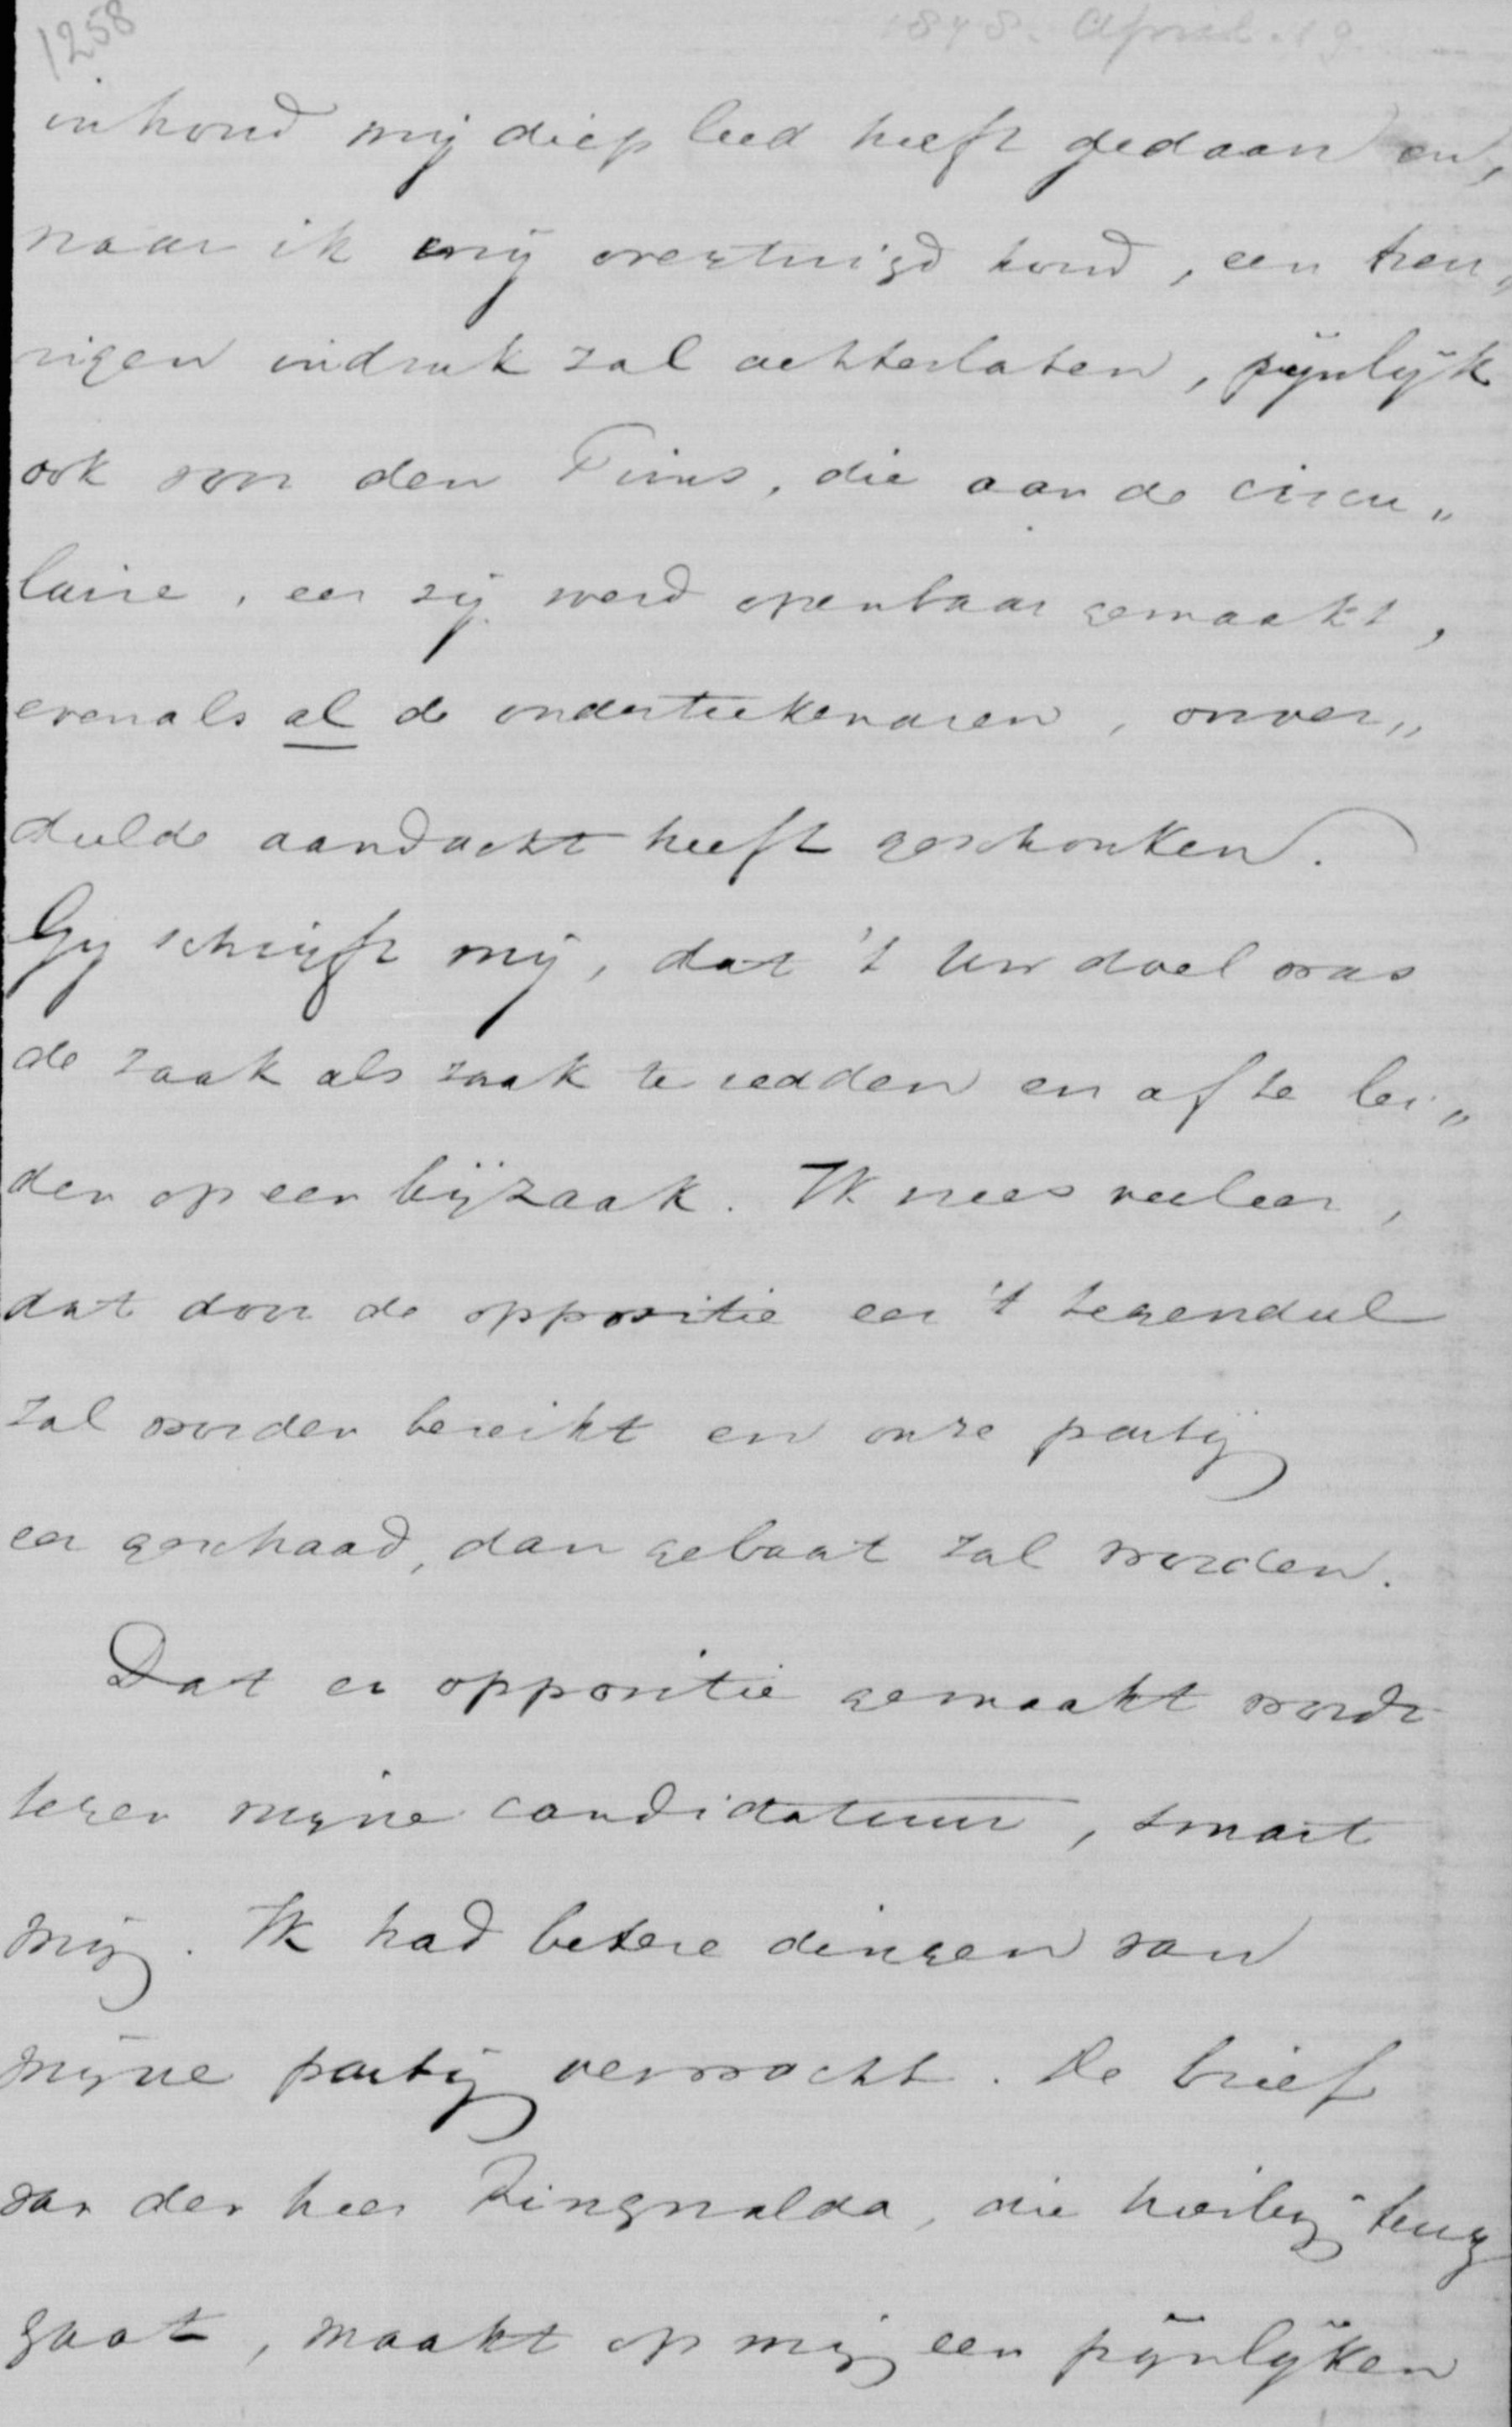 1258
1878. April. 19
inhoud mij diep leed heeft gedaan en,
naar ik mij overtuigd houd, een treu„
rigen indruk zal achterlaten, pijnlijk
ook voor den Fims, die aan de circu„
laire, eer zij werd openbaar gemaakt,
evenals al de onderteekenaren, onver„
deelde aandacht heeft geschonken.
Gij schrijft mij, dat 't Uw doel was
de zaak als zaak te redden en af te lei„
den op een bijzaak. Ik vrees veeleer,
dat door de oppositie eer 't tegendeel
zal worden bereikt en onze partij
eer geschaad, dan gebaat zal worden.
Dat er oppositie gemaakt wordt
tegen mijne candidatuur, smart
mij. Ik had betere dingen van
mijne partij verwacht. De brief
van den heer Ringnalda, die hierbij terug
gaat, maakt op mij een pijnlijken